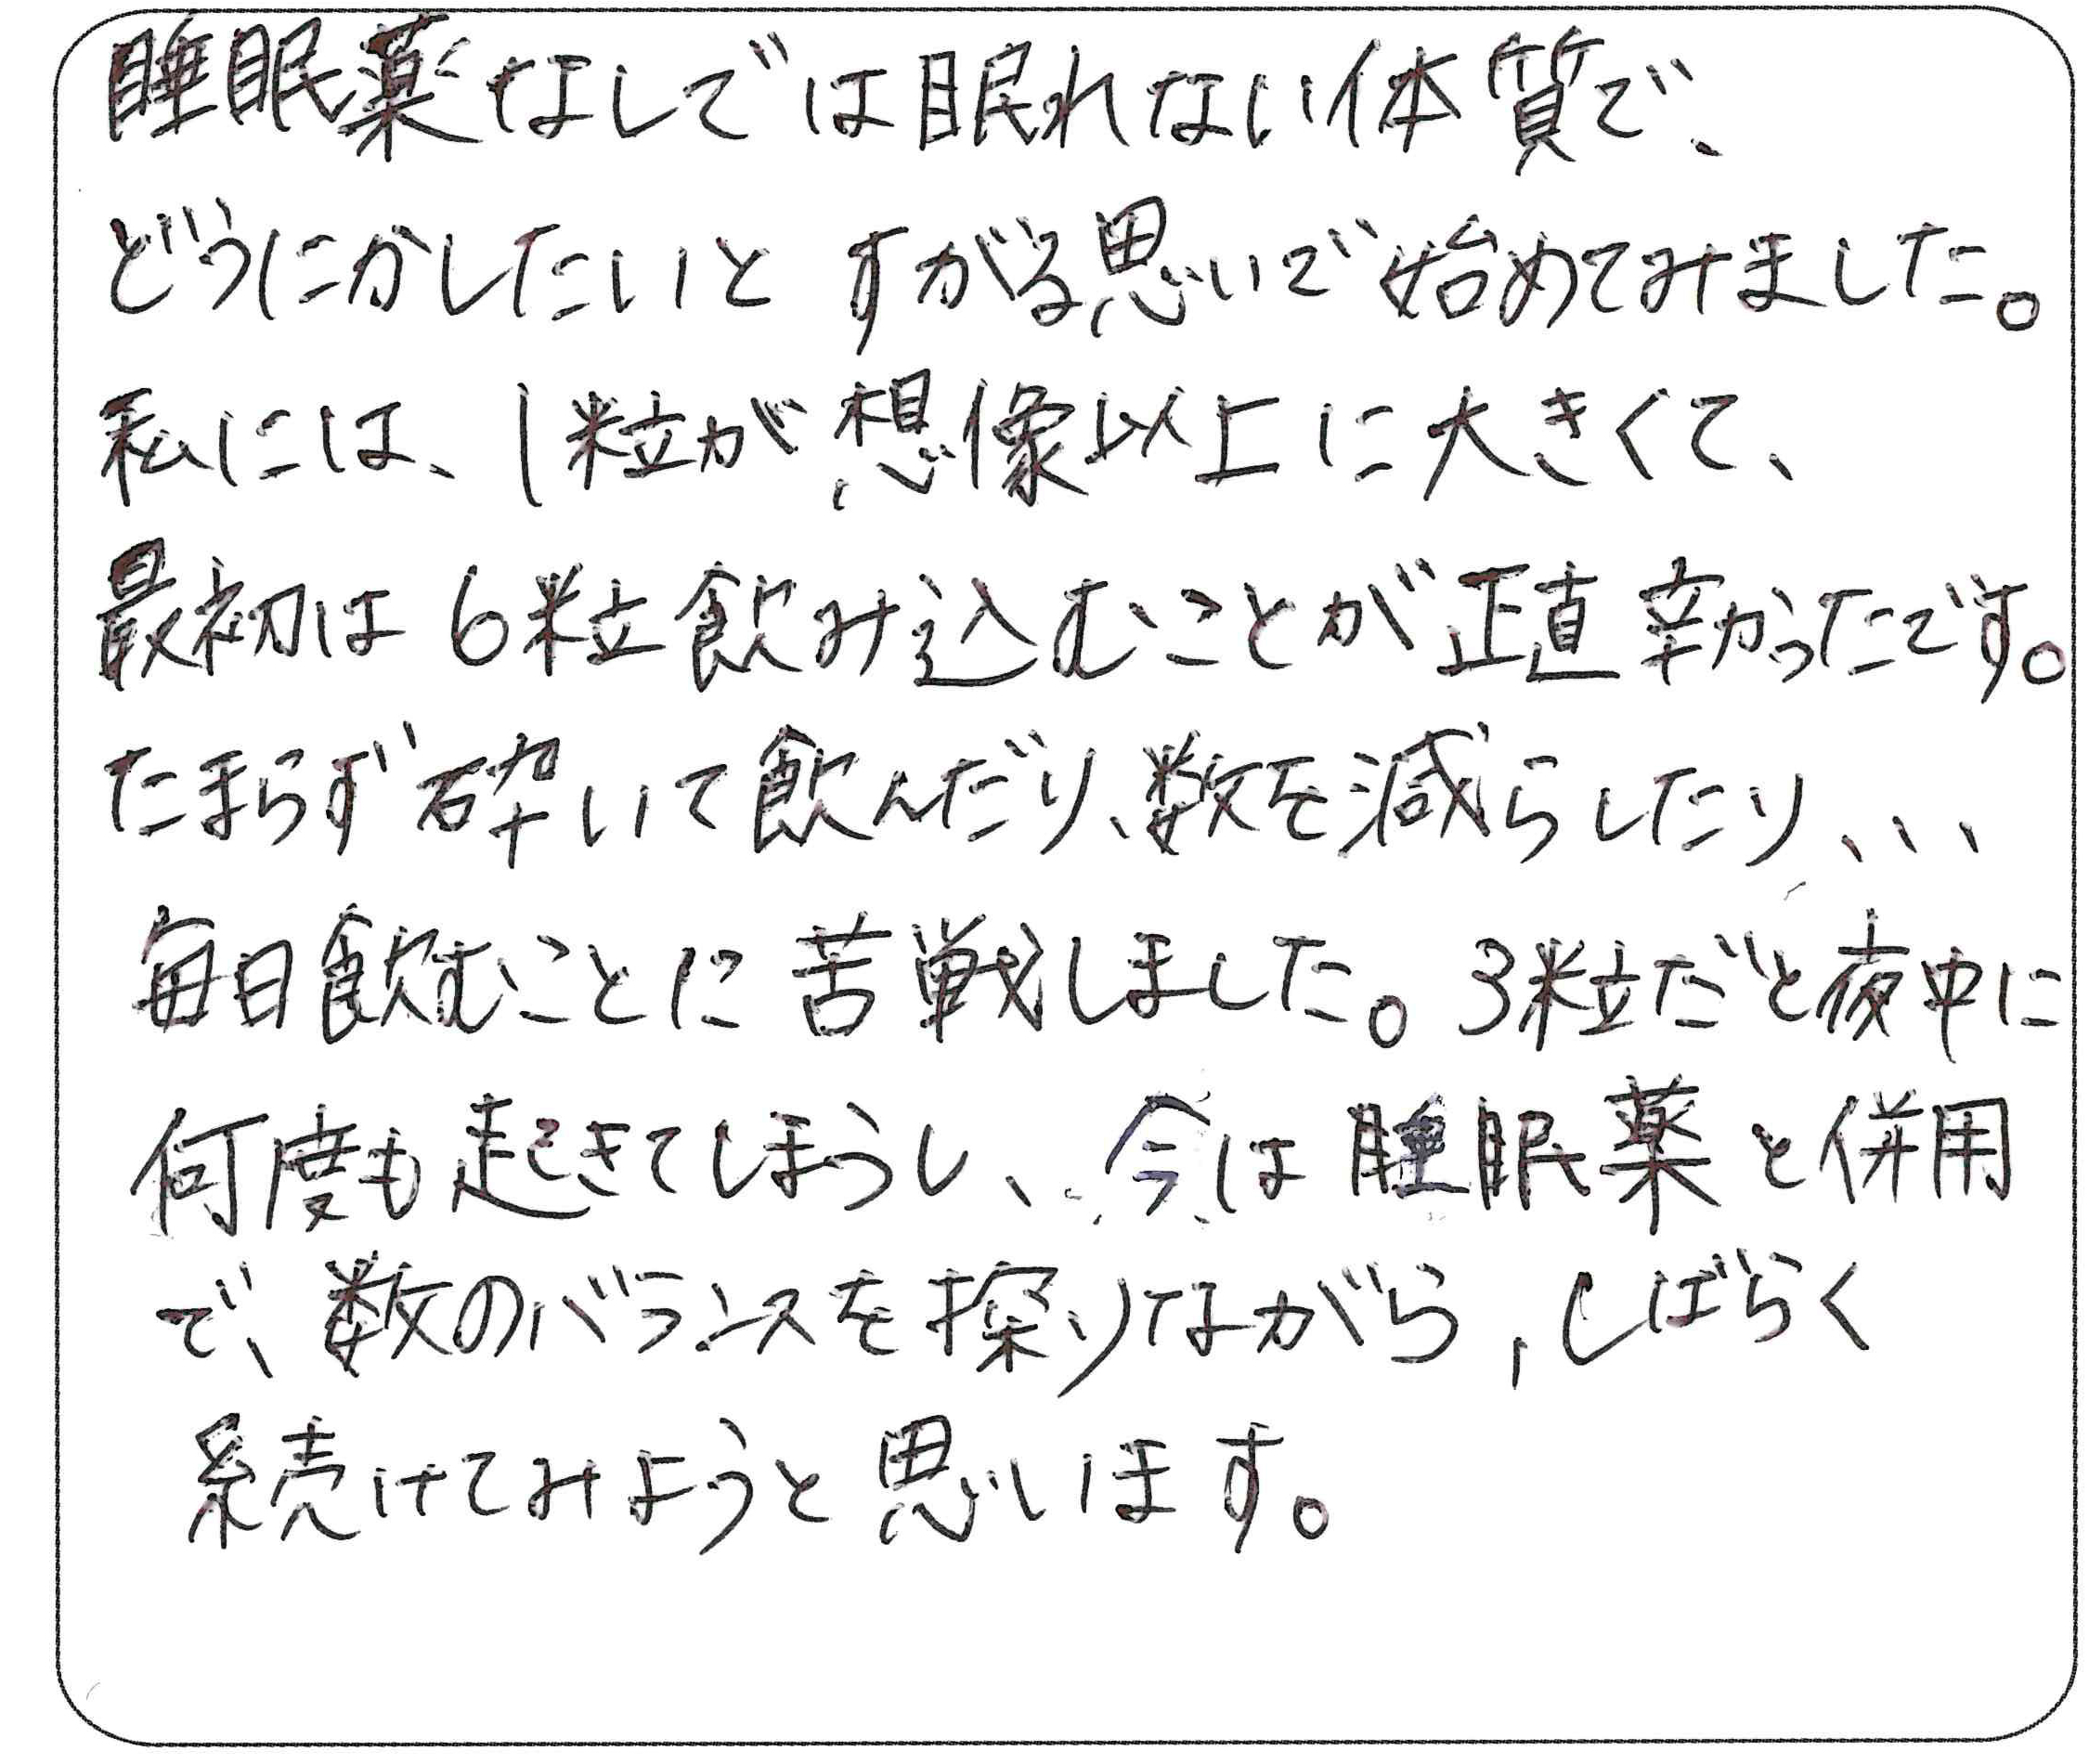 睡眠薬なしでは眠れない体質で、
どうにかしたいと すがる思いで始めてみました。
私には、1粒が想像以上に大きくて、
最初は6粒飲み込むことが正直辛かったです。
たまらず砕いて飲んだり、数を減らしたり、、、
毎日飲むことに苦戦しました。3粒だと夜中に
何度も起きてしまうし、今は睡眠薬と併用
で、数のバランスを探りながら,しばらく
続けてみようと思います。